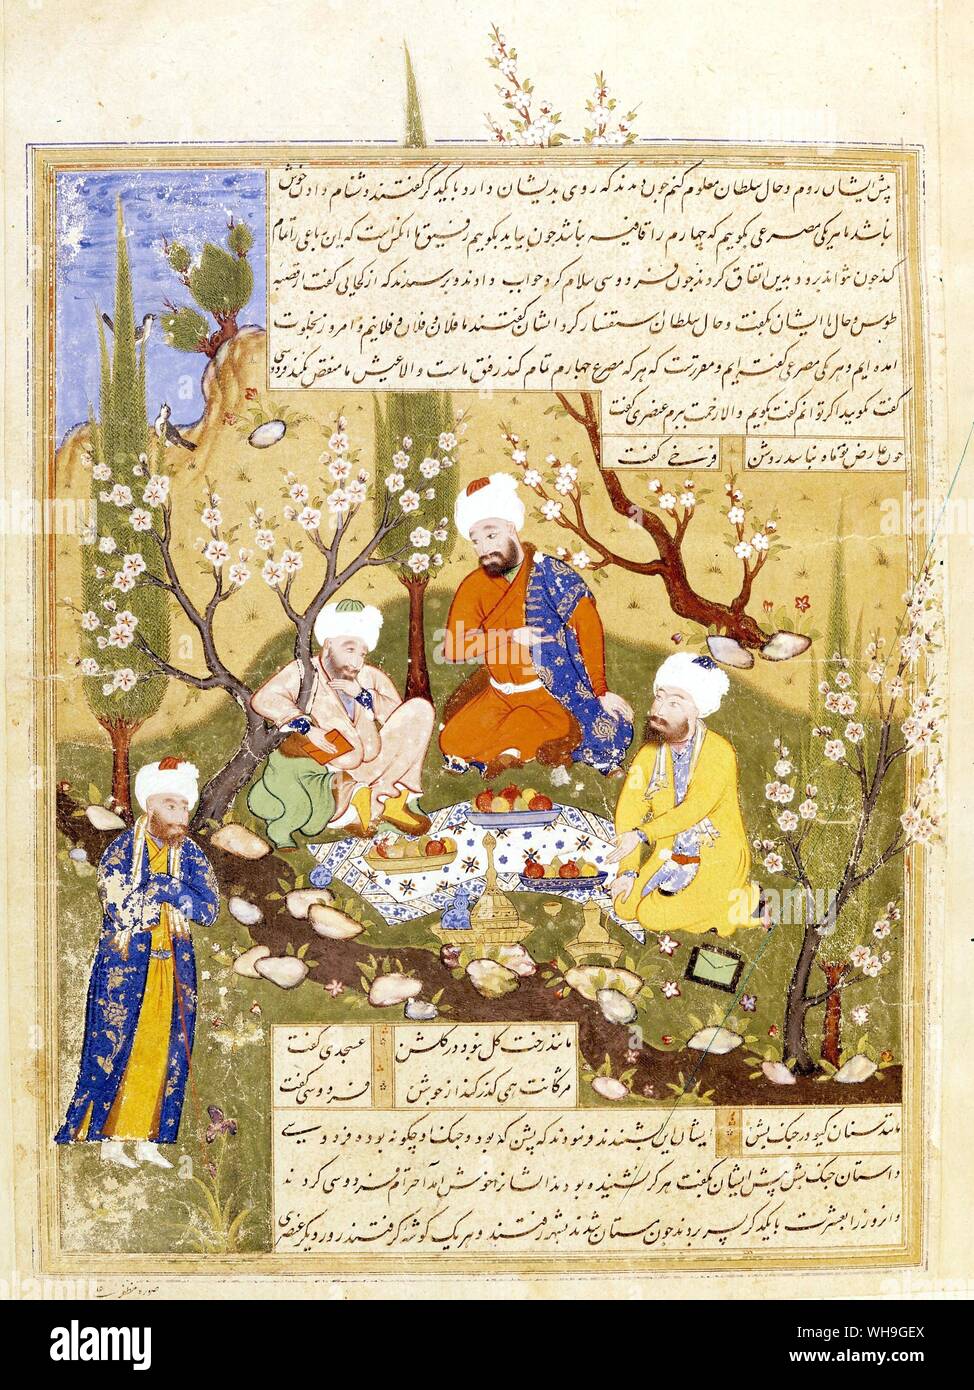 پیش ایشان روم و حال سلطان معلوم کنم چون دیدند که روی بدیشان دارد با یکدیگر گفتند دشنام دادن خوش
نباشد ما هر یکی مصرعی بگوییم که چهارم را قافیه نباشد چون بیاید بگوییم رفیق ما آنکس است که این رباعی را تمام
کند چون نتواند برود بدین اتفاق کردند چون فردوسی سلام کرد جواب دادند و پرسیدند که از کجایی گفت از قصبه
طوس و حال با ایشان بگفت و حال سلطان استفسار کرد ایشان گفتند ما فلان و فلان و فلانیم و امروز بخلوت
آمده ایم و هر یکی مصرعی گفته ایم و مقررست که هر که مصرع چهارم تمام کند رفیق ماست والا عیش ما منغص نکند فردوسی
گفت بگویید اگر توانم گفت بگویم والا زحمت ببرم عنصری گفت
چون عارض تو ماه نباشد روشن فرخی گفت
مانند رخت گل نبود در گلشن عسجدی گفت
مژگانت همی گذر کند از جوشن فردوسی گفت
مانند سنان گیو در جنگ پشن ایشان این بشنیدند و نمودند که پشن که بود و جنگ او چگونه بوده فردوسی
داستان جنگ پشن پیش ایشان بگفت هرگز نشنیده بودند ایشانرا خوش آمد احترام فردوسی کردند
و آن روز را بعشرت با یکدیگر بسر بردند چون مستان شدند بشهر رفتند و هر یک گوشه گرفتند روز دیگر عنصری
alamy
Image ID: WH9GEX
www.alamy.com